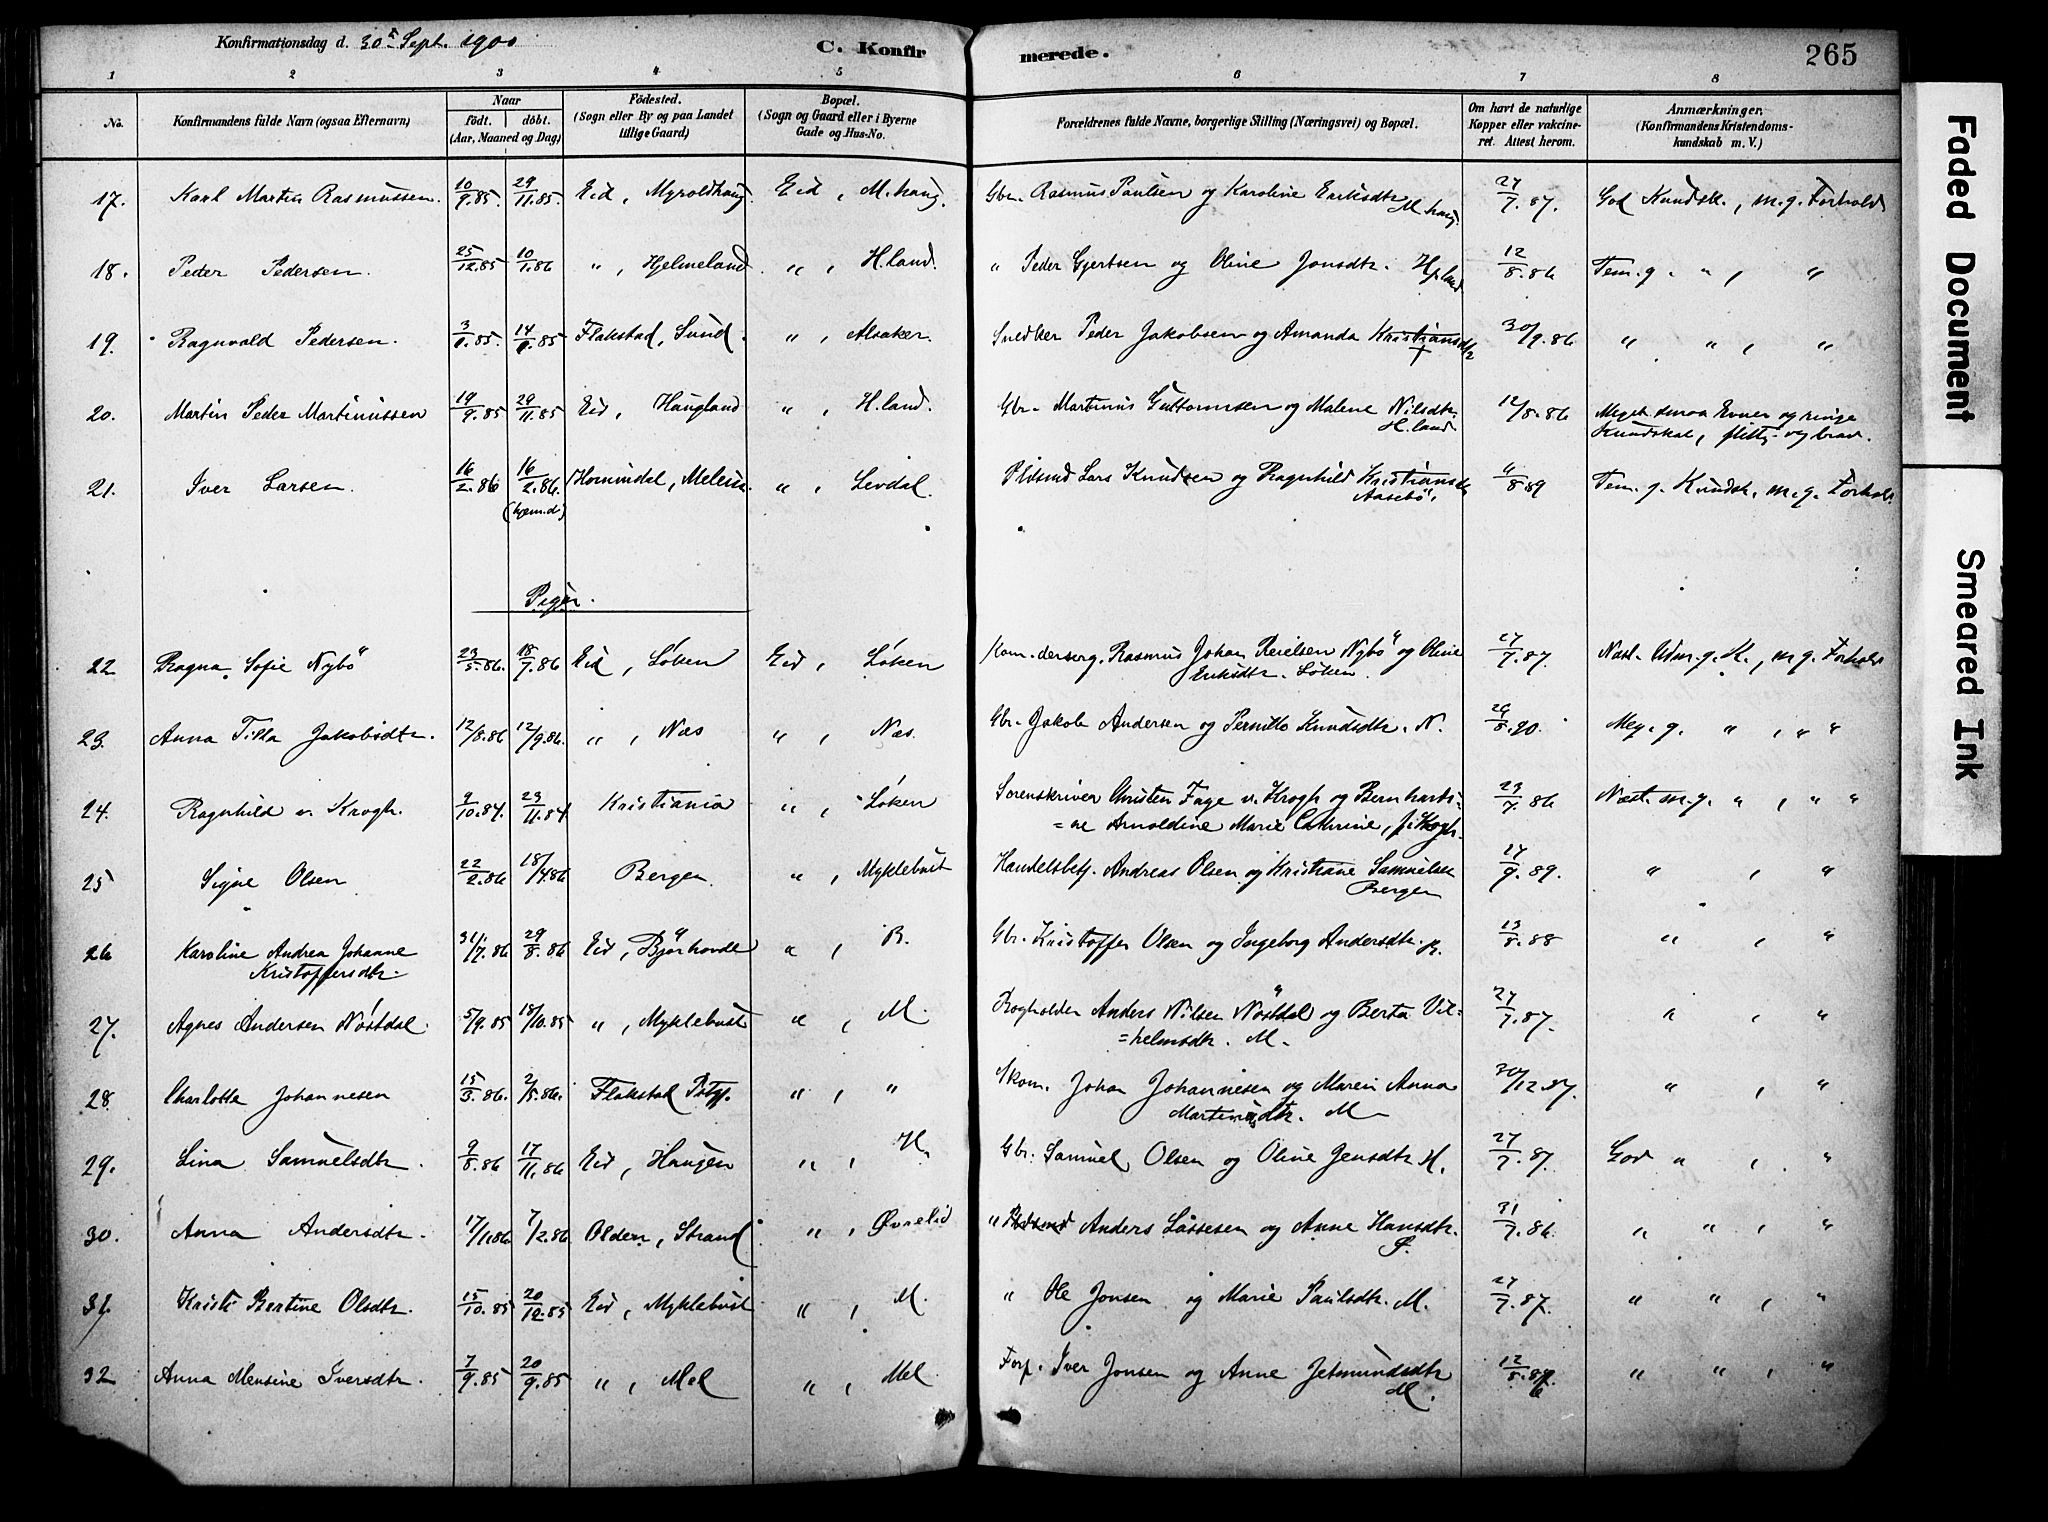 Konfirmationsdag d. 30te Sept. 1900
C. Konfirmerede.
265
1 2 3 4 5 6 7 8
No.
Konfirmandens fulde Navn (ogsaa Efternavn)
Naar
födt. döbt.
(Aar, Maaned og Dag)
Födested.
(Sogn eller By og paa Landet
tillige Gaard)
Bopæl.
(Sogn og Gaard eller i Byerne
Gade og Hus-No.
Forældrenes fulde Navne, borgerlige Stilling (Næringsvei) og Bopæl.
Om havt de naturlige
Kopper eller vakcine-
ret. Attest herom.
Anmærkninger.
(Konfirmandens Kristendoms-
kundskab m. V.)
17. Karl Martin Rasmussen. 10/9.85. 29/11.85. Eid, Myroldhaug. Eid, M.haug. Gbr. Rasmus Paulsen og Karoline Eriksdtr. M.haug. 27/7.87. God Kundsk., m.g. Forhold
18. Peder Pedersen. 25/12.85 10/1.86 ", Hjelmeland. ", H.land. " Peder Gjertsen og Oline Jonsdtr. Hj.land 12/8.86 Tem. g. " , "
19. Ragnvald Pedersen. 3/.85. 14/.85 Flakstad, Sund. ", Alsaker. Snedker Peder Jakobsen og Amanda Kristiansdtr + 30/9.86 " " , "
20. Martin Peder Martinussen 19/9.85 29/11.85 Eid, Haugland ", H.land. Gbr. Martinus Guttormsen og Malene Nilsdtr. H.land 12/8.86 Meget smaa Evner og ringe
Kundskab, flittig og brav.
21. Iver Larsen. 16/2.86 16/2.86. (hjem.d) Hornindal, Melem. ", Levdal. Plds.md Lars Knudsen og Ragnhild Kristiansdtr
Aasebö, /8.89 Tem. g. Kundsk., m.g. Forhold
Piger.
22 Ragna Sofie Nybö 23/5.86. 18/7.86 Eid, Løken Eid, Løken Kom-derserg. Rasmus Johan Reielsen Nybö og Oline
Eriksdtr. Løken. 27/7.87. Næst. Udm. g. K., m.g. Forhold
23. Anna Tilla Jakobsdtr. 12/8.86 12/9.86. ", Næs ", Næs. Gbr. Jakob Andersen og Pernille Knudsdtr. N. 29/8.90. Meg. g. " , " "
24. Ragnhild v. Krogh. 9/10.84. 23/11.84 Kristiania ", Løken Sorenskriver Christen Fage v. Krogh og Bernhardi-
=ne Arnoldine Marie Cathrine, f. Krogh. 23/7.86 Næst. m.g. " , " "
25 Signe Olsen 22/2.86 18/4.86 Bergen. ", Myklebust Handelsbetj. Andreas Olsen og Kristiane Samuelsen
Bergen 17/9.89. " , "
26 Karoline Andrea Johanne
Kristoffersdtr. 31/7.86 29/8.86 Eid, Björhovde ", B. Gbr. Kristoffer Olsen og Ingeborg Andersdtr. B. 13/8.88 " , "
27. Agnes Andersen Nöstdal. 5/9.85 18/10.85 ", Myklebust ", M. Rogholden Anders Nilsen Nöstdal og Berta Vil-
=helmsdtr. M. 27/7.87. " , "
28 Charlotte Johannesen 15/3.86. 2/5.86. Flakstad Pstgj. ", " Skom. Johan Johannesen og Maren Anna
Martinusdtr. M. 30/12.87. " , "
29. Lina Samuelsdtr. 9/8.86 17/11.86 Eid, Haugen ", H. Gbr. Samuel Olsen og Oline Jensdtr H. 27/7.87. God " , "
30. Anna Andersdtr. 17/1.86. 7/2.86 Olden, Strand. ", Øvrelid " Anders Lassesen og Anne Hansdtr.
Ø. 31/7.86. " " , "
31. Kristi Bertine Olsdtr. 15/10.85 20/12.85 Eid, Myklebust ", M. " Ole Jonsen og Marie Paulsdtr. M. 27/7.87. " " , "
32 Anna Mensine Iversdtr. 7/9.85 20/9.85 ", Mel ", Mel Forp. Iver Jonsen og Anne Jetmundsdtr
M. 12/8.86 " " , "
Faded Document
Smeared Ink